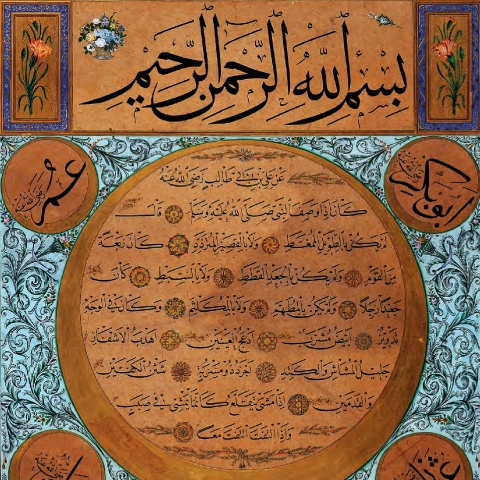 بسم الله الرحمن الرحيم
عمر
ابو بكر
عن علي بن ابي طالب رضي الله عنه
كان اذا وصف النبي صلى الله عليه وسلم قال
لم يكن بالطويل الممغط ولا بالقصير المتردد كان ربعة
من القوم ولم يكن بالجعد القطط ولا بالسبط كان
جعدا رجلا ولم يكن بالمطهم ولا بالمكلثم وكان في الوجه
تدوير ابيض مشرب ادعج العينين اهدب الاشفار
جليل المشاش والكتد اجرد ذو مسربة شثن الكفين
والقدمين اذا مشى تقلع كانما يمشي في صبب
واذا التفت التفت معا
عثمان